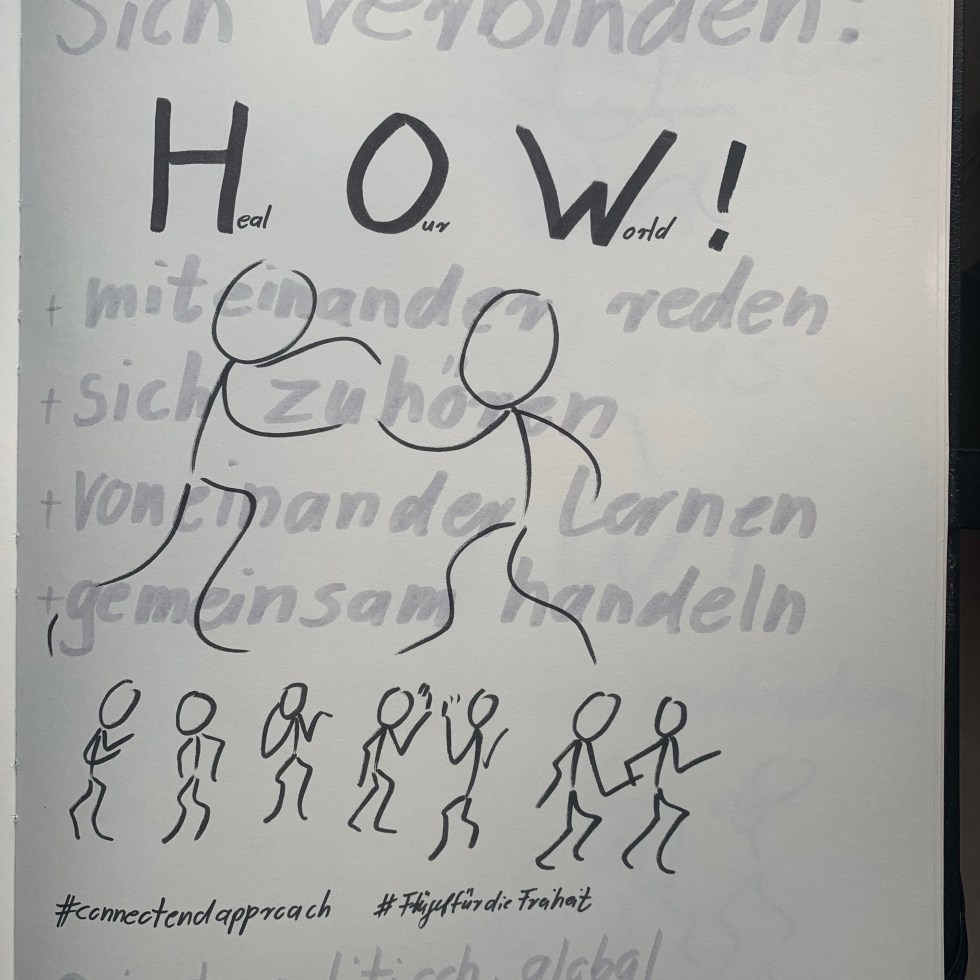 Sich verbinden:
Heal Our World!
+ miteinander reden
+ sich zuhören
+ voneinander Lernen
+ gemeinsam handeln
#connectendapproach #FlügelfürdieFraiheit
global